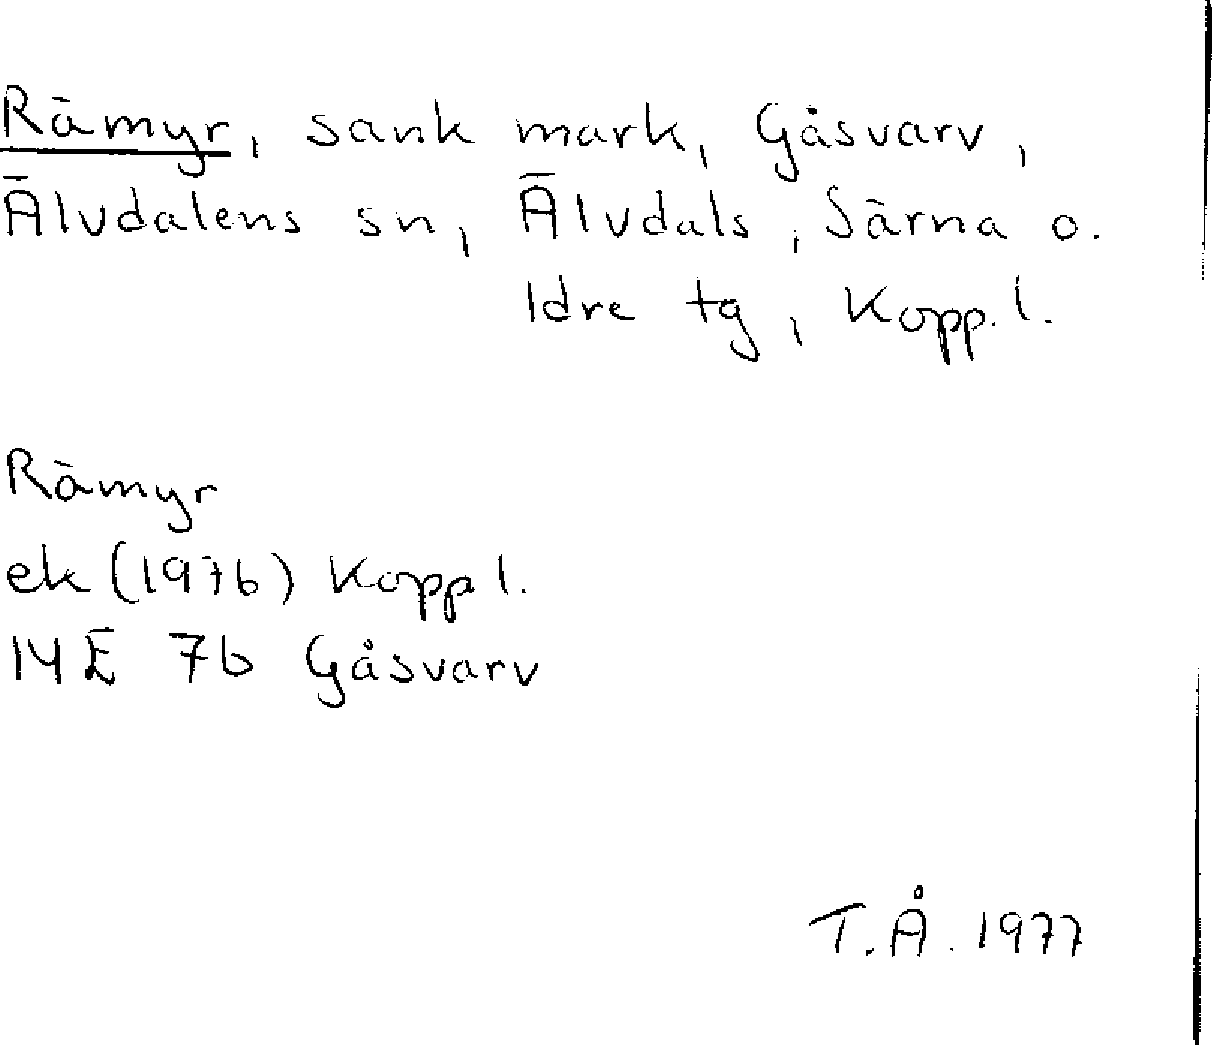 Rämyr, sank mark, Gåsvarv,
Älvdalens sn, Älvdals, Särna o.
Idre tg, Kopp. l.
Rämyr
ek (1976) Kopp l.
14E 7b Gåsvarv
T.Å. 1977